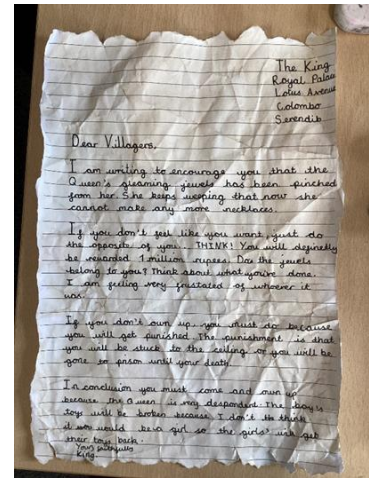 The King
Royal Palace
Lotus Avenue
Colombo
Serendib
Dear Villagers,
I am writing to encourage you that the
Queen's gleaming jewels has been pinched
from her. She keeps weeping that now she
cannot make any more necklaces.
If you don't feel like you want, just do
the opposite of you... THINK! You will definetly
be rewarded 1 million rupees. Do the jewels
belong to you? Think about what you're done.
I am feeling very frustated of whoever it
was.
If you don't own up, you must do because
you will get punished. The punishment is that
you will be stuck to the ceiling or you will be
gone to prison until your death.
In conclusion you must come and own up
because the Queen is very despondent. The boys's
toys will be broken because I don't think
it would be a girl so the girls' will get
their toys back.
Yours faithfully
King.